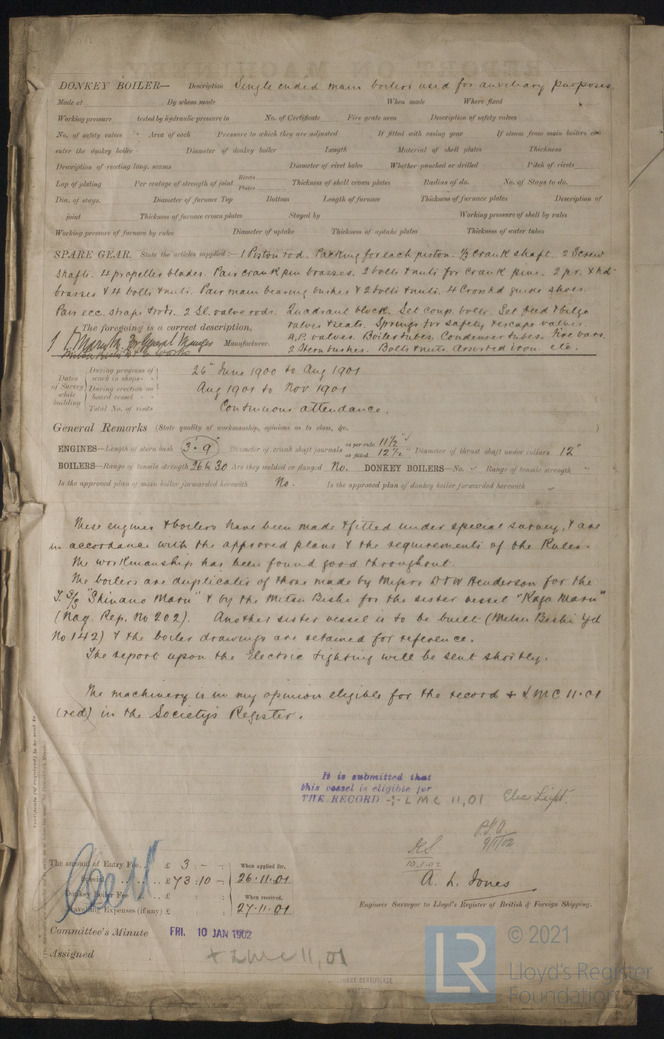 DONKEY BOILER— Description Single ended main boilers used for auxiliary purposes
Made at By whom made When made Where fixed
Working pressure tested by hydraulic pressure to No. of Certificate Fire grate area Description of safety valves
No. of safety valves Area of each Pressure to which they are adjusted If fitted with easing gear If steam from main boilers can
enter the donkey boiler Diameter of donkey boiler Length Material of shell plates Thickness
Description of riveting long. seams Diameter of rivet holes Whether punched or drilled Pitch of rivets
Lap of plating Per centage of strength of joint Rivets Plates Thickness of shell crown plates Radius of do. No. of Stays to do.
Dia. of stays. Diameter of furnace Top Bottom Length of furnace Thickness of furnace plates Description of
joint Thickness of furnace crown plates Stayed by Working pressure of shell by rules
Working pressure of furnace by rules Diameter of uptake Thickness of uptake plates Thickness of water tubes
SPARE GEAR. State the articles supplied:— 1 Piston rod. Packing for each piston. 1/3 Crank shaft. 2 Screw
shafts. 4 propeller blades. Pair crank pin brasses. 2 bolts & nuts for crank pins. 2 pr. X hd
brasses & 4 bolts & nuts. Pair main bearing bushes & 2 bolts & nuts. 4 Crosshd guide shoes.
Pair ecc. straps & rods. 2 Sl. valve rods. Quadrant block. Set coup. bolts. Set feed & bilge
valves & seats. Springs for safety & escape valves.
The foregoing is a correct description,
A.P. valves. Boiler tubes. Condenser tubes. Fire bars.
Manufacturer.
2 Stern bushes. Bolts & nuts assorted iron. etc.
Dates of Survey while building
During progress of work in shops - - 26th June 1900 to Aug 1901
During erection on board vessel - - Aug 1901 to Nov 1901
Total No. of visits Continuous attendance.
General Remarks (State quality of workmanship, opinions as to class, &c.
ENGINES—Length of stern bush 3'-9" Diameter of crank shaft journals as per rule 11 1/2" as fitted 12 1/2" Diameter of thrust shaft under collars 12"
BOILERS—Range of tensile strength 26 to 30 Are they welded or flanged No. DONKEY BOILERS—No. Range of tensile strength
Is the approved plan of main boiler forwarded herewith No. Is the approved plan of donkey boiler forwarded herewith
These engines & boilers have been made & fitted under special survey, & are
in accordance with the approved plans & the requirements of the Rules.
The workmanship has been found good throughout.
The boilers are duplicates of those made by Messrs D & W Henderson for the
T.S/S "Shinano Maru" & by the Mitsu Bishi for the sister vessel "Kaga Maru"
(Nag. Rep. No 202). Another sister vessel is to be built (Mitsu Bishi Yd
No 142) & the boiler drawings are retained for reference.
The report upon the Electric Lighting will be sent shortly.
The machinery is in my opinion eligible for the record + LMC 11.01
(red) in the Society's Register.
It is submitted that
this vessel is eligible for
THE RECORD + LMC 11,01 Elec Light.
The amount of Entry Fee. . £ 3 : - : - When applied for,
Special . . . . £ 73 : 10 : - 26.11.01
Donkey Boiler Fee . . £ When received,
Travelling Expenses (if any) £ 27.11.01
A. L. Jones
Engineer Surveyor to Lloyd's Register of British & Foreign Shipping.
Committee's Minute FRI. 10 JAN 1902
Assigned + LMC 11,01
© 2021
Lloyd's Register
Foundation
LR